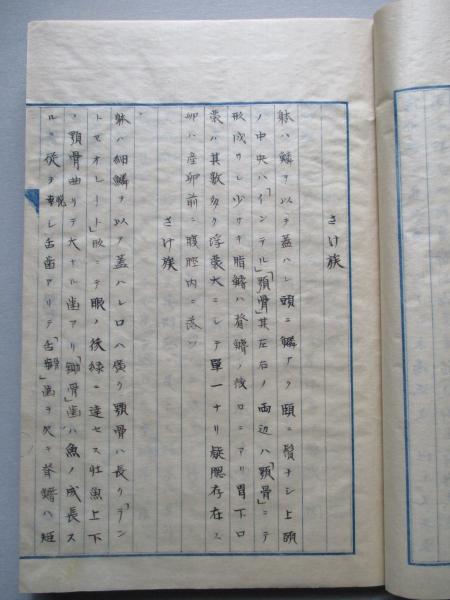 さけ族
躰ハ鱗ヲ以テ蓋ハレ頭ニ鱗ナク頤ニ鬚ナシ上頭
ノ中央ハ「インテル」顎骨」其左右ノ両辺ハ「顎骨」ニテ
形成サレ少サキ脂鰭ハ脊鰭ノ後口ニアリ胃下口
嚢ハ其数多ク浮嚢大ニシテ單一ナリ疑腮存在ス
卵ハ産卵前ニ腹腔内ニ落ツ
さけ族
躰ハ細鱗ヲ以テ蓋ハレ口ハ廣ク顎骨ハ長ク「デン
トマオレート」歯ニテ眼ノ後縁ニ達セス牡魚上下
ノ顎骨曲リテ大ナル歯アリ「鋤骨」歯ハ魚ノ成長ス
ルニ從テ脱シ舌歯アリテ「舌」歯ヲ欠キ脊鰭ハ短